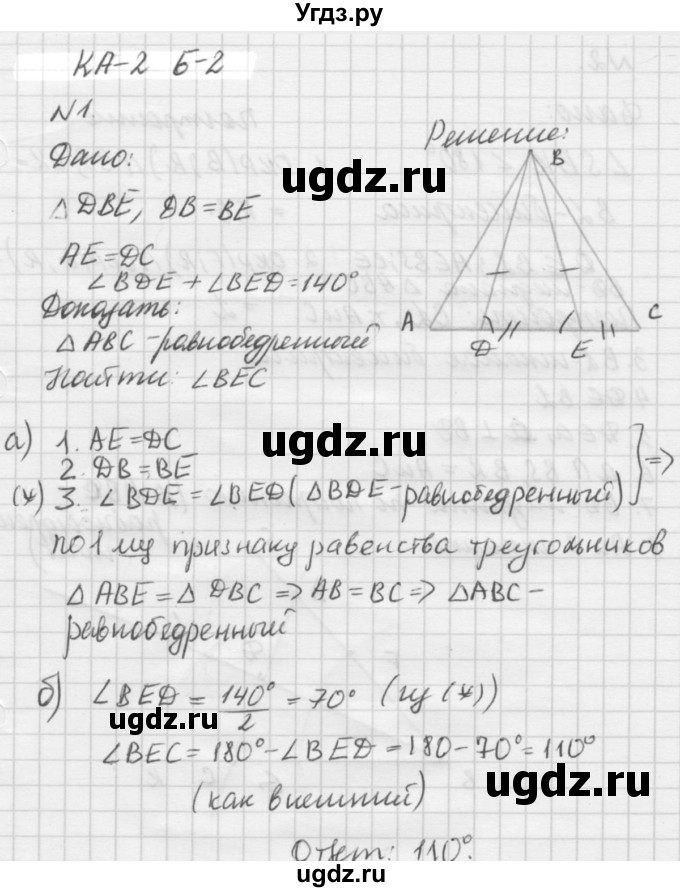 Угдз.ру
КА-2 Б-2
N1
Дано:
△DBE, DB=BE
AE=DC
∠BDE+∠BED=140°
Доказать:
△ABC-равнобедренный
Найти: ∠BEC
Решение:
B
A
D
E
C
ugdz.ru
ugdz.ru
а) 1. AE=DC
2. DB=BE
(*) 3. ∠BDE=∠BED(△BDE-равнобедренный) ⇒
по 1 му признаку равенства треугольников
△ABE=△DBC⇒AB=BC⇒△ABC-
равнобедренный
ugdz.ru
б) ∠BED=140°/2=70° (из (*))
ugdz.ru
ugdz.ru
∠BEC=180°-∠BED=180-70°=110°
(как внешний)
ugdz.ru
ugdz.ru
Ответ: 110°.
ugdz.ru